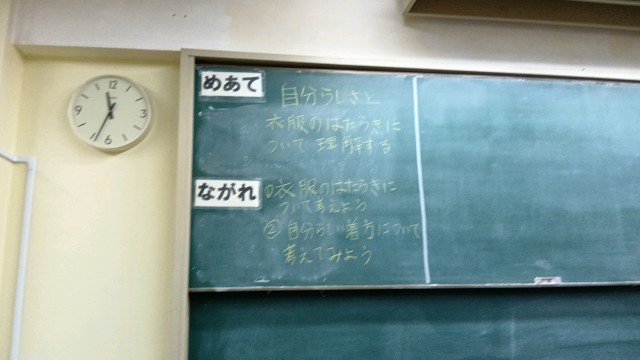 12
3
6
9
めあて
自分らしさと
衣服のはたらきに
ついて 理解する
ながれ
①衣服のはたらきに
ついて考えよう
②自分らしい着方について
考えてみよう